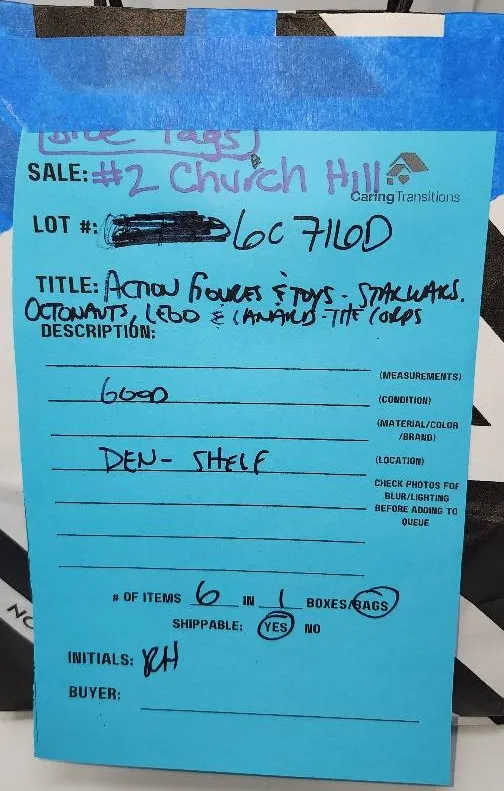 Blue Tags
SALE: #2 Church Hill
CaringTransitions
LOT #: 6C 7160D
TITLE: ACTION FIGURES & TOYS - STARWARS.
OCTONAUTS, LEGO & LANARD-THE CORPS
DESCRIPTION:
(MEASUREMENTS)
GOOD (CONDITION)
(MATERIAL/COLOR
/BRAND)
DEN- SHELF (LOCATION)
CHECK PHOTOS FOR
BLUR/LIGHTING
BEFORE ADDING TO
QUEUE
# OF ITEMS 6 IN 1 BOXES/BAGS
SHIPPABLE: YES NO
INITIALS: RH
BUYER: